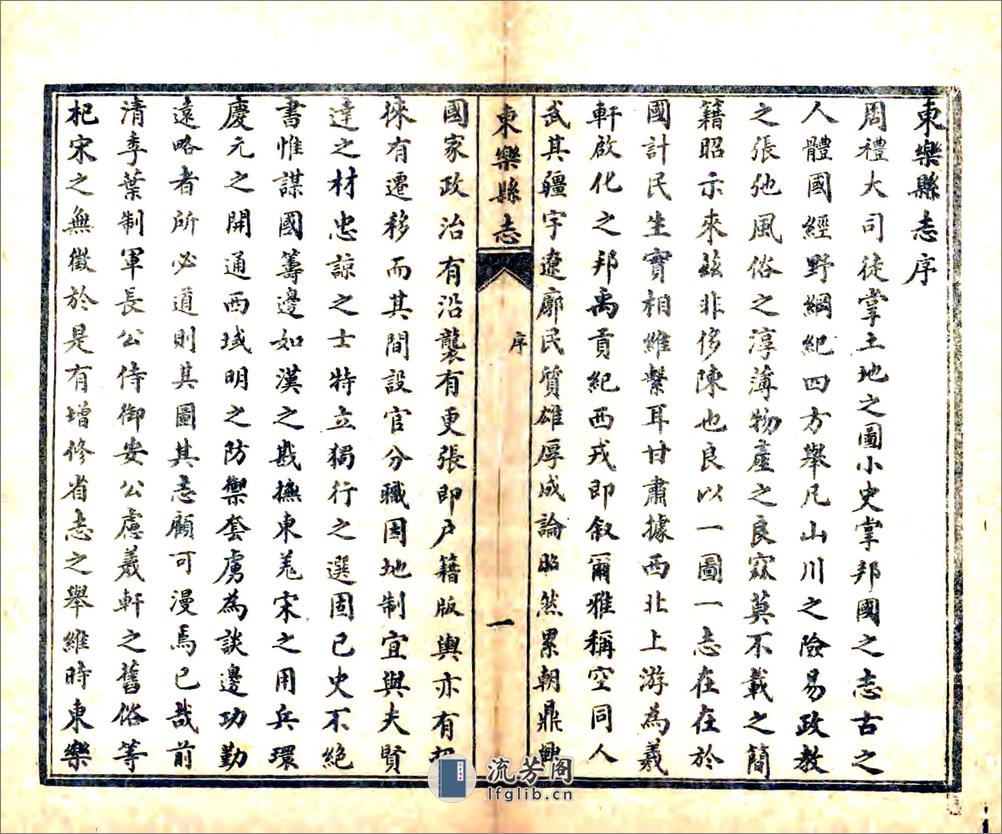 東樂縣志序
周禮大司徒掌土地之圖小史掌邦國之志古之
人體國經野綱紀四方舉凡山川之險易政教
之張弛風俗之淳薄物產之良窳莫不載之簡
籍昭示來茲非侈陳也良以一圖一志在在於
國計民生實相維繫耳甘肅據西北上游為羲
軒啟化之邦禹貢紀西戎即叙爾雅稱空同人
武其疆宇遼廓民質雄厚成論昭然累朝鼎興
東樂縣志
序
一
國家政治有沿襲有更張即戶籍版輿亦有
採有遷移而其間設官分職因地制宜與夫賢
達之材忠諒之士特立獨行之選固已史不絕
書惟謀國籌邊如漢之戡撫東羌宋之用兵環
慶元之開通西域明之防禦套虜為談邊功勤
遠略者所必道則其圖其志顧可漫焉已哉前
清季葉制軍長公侍御安公慮羲軒之舊俗等
杞宋之無徵於是有增修省志之舉維時東樂
流芳閣
lfglib.cn